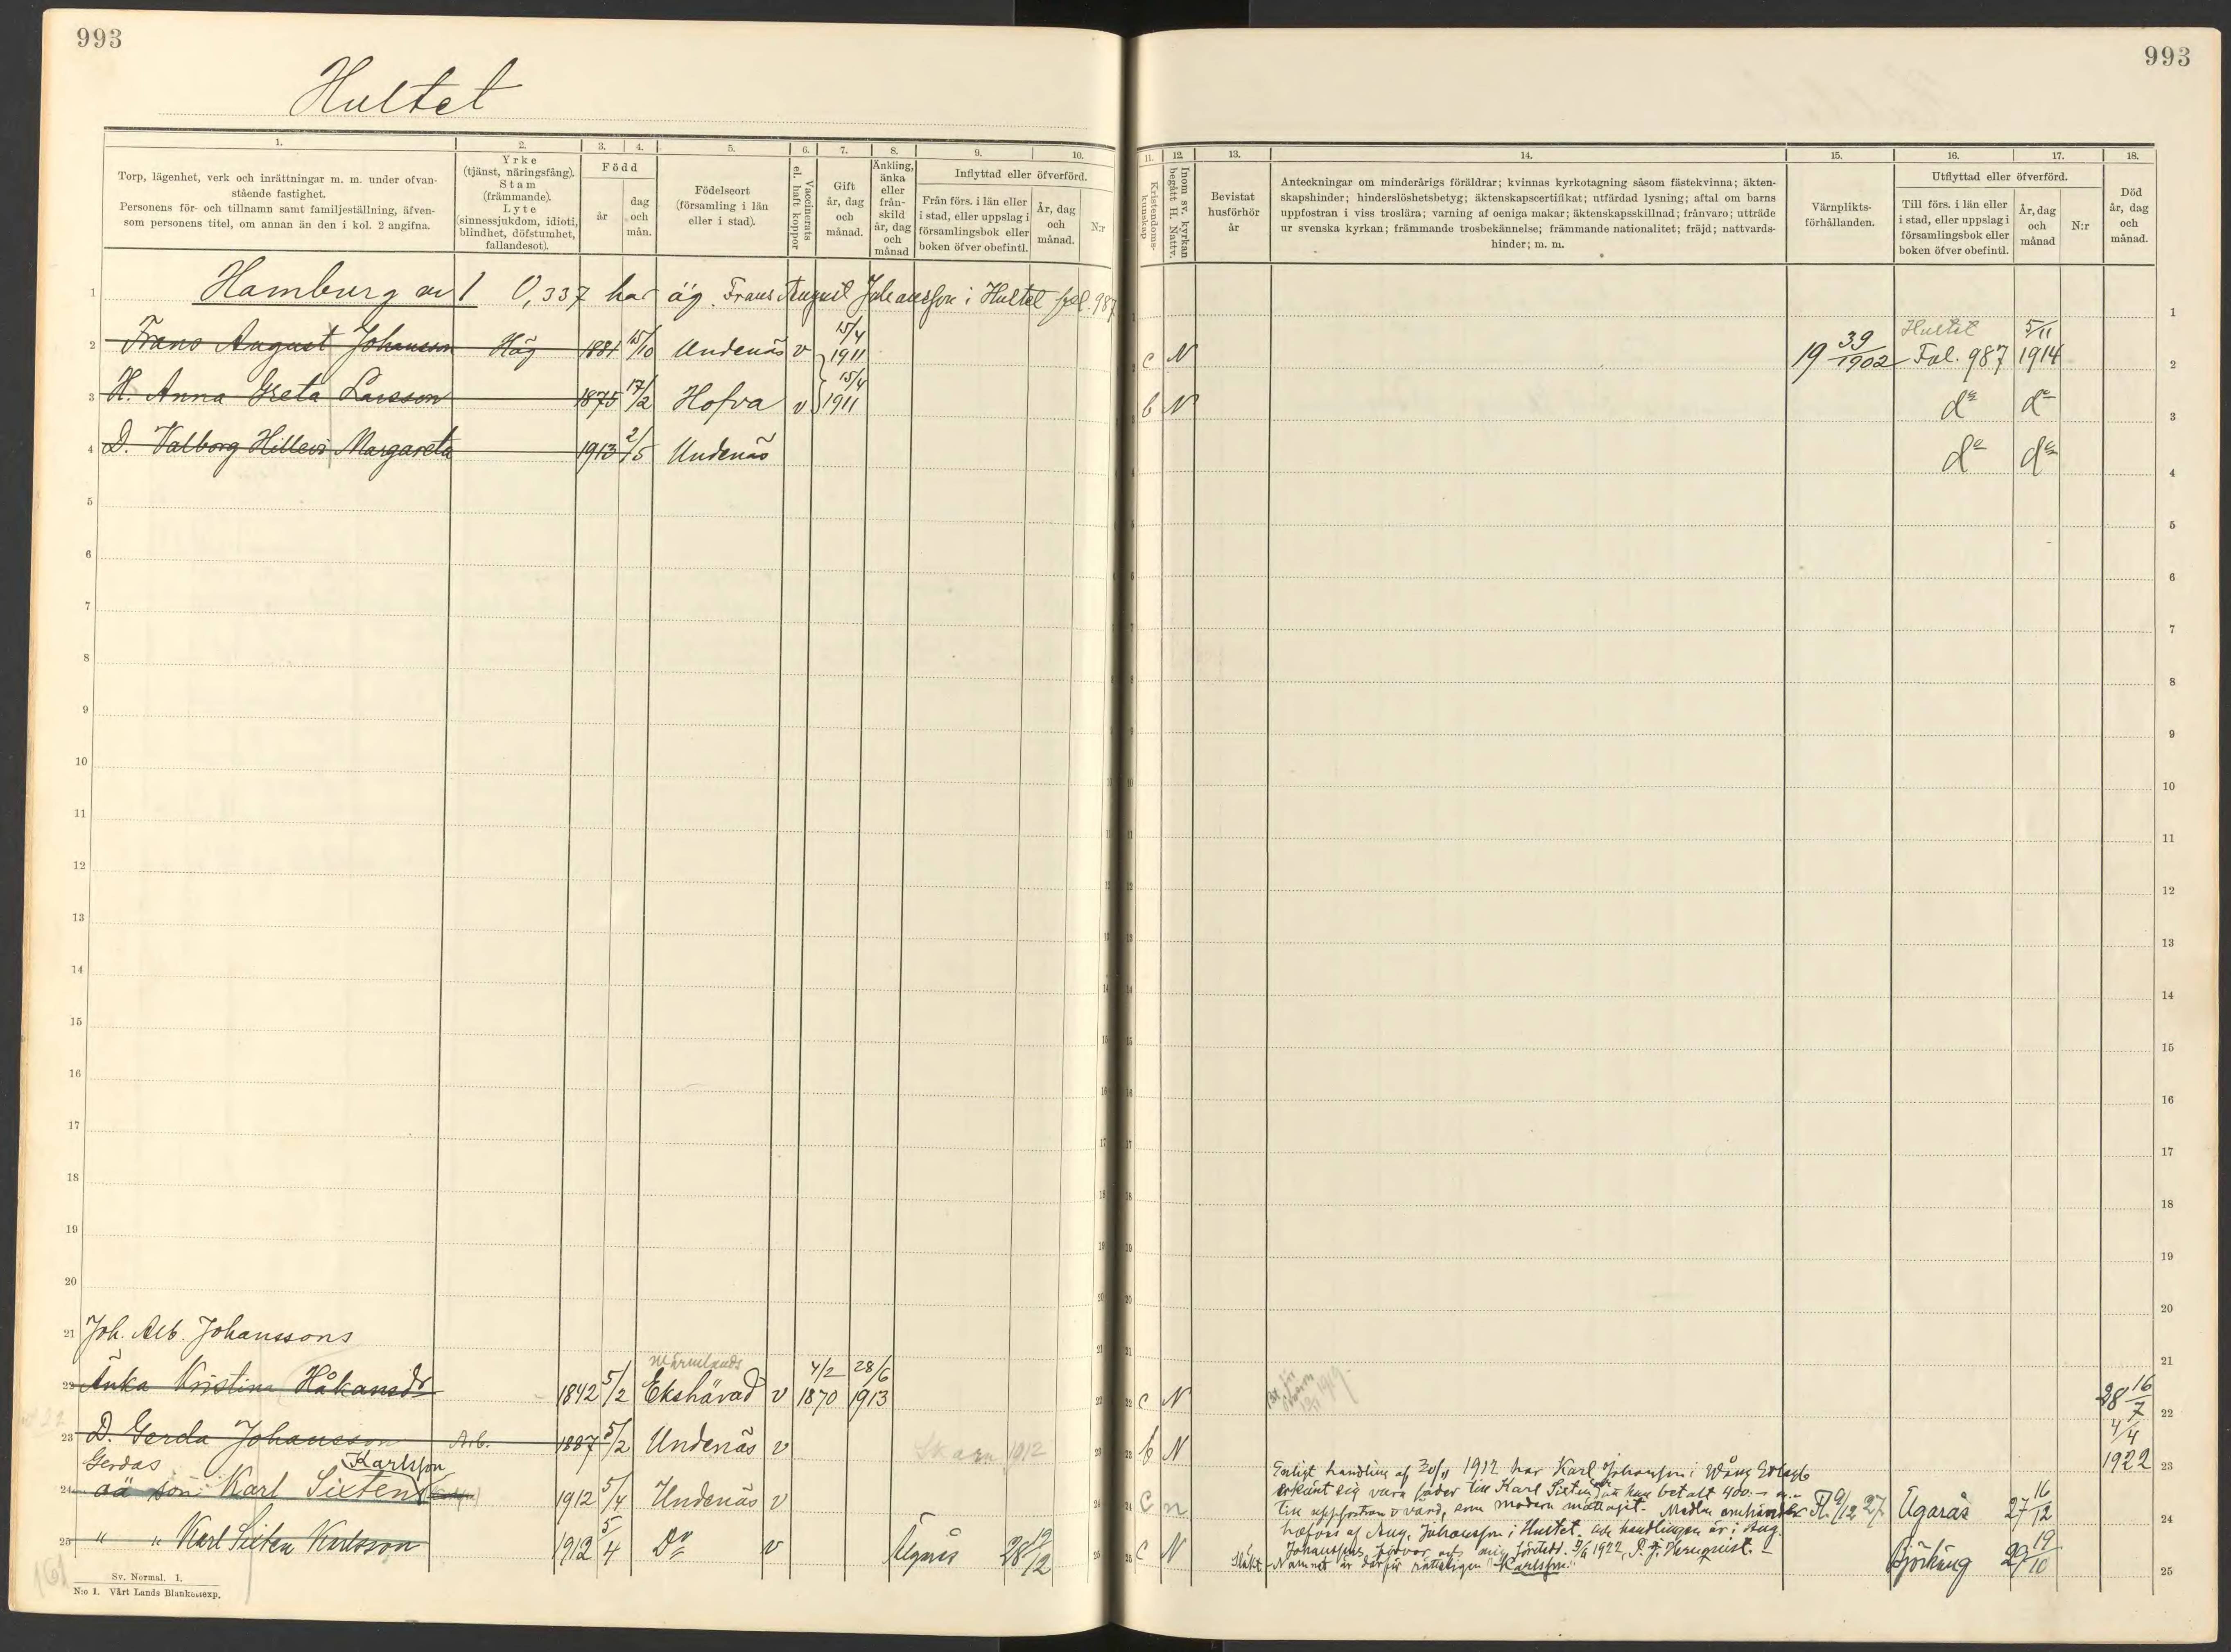 993
993
Hultet
1. 2. 3. 4. 5. 6. 7. 8. 9. 10. 11. 12. 13. 14. 15. 16. 17. 18.
Torp, lägenhet, verk och inrättningar m. m. under ofvan-
stående fastighet.
Personens för- och tillnamn samt familjeställning, äfven-
som personens titel, om annan än den i kol. 2 angifna.
Yrke
(tjänst, näringsfång).
Stam
(främmande).
Lyte
(sinnessjukdom, idioti,
blindhet, döfstumhet,
fallandesot).
Född
år
dag
och
mån.
Födelseort
(församling i län
eller i stad).
Vaccinerats
el. haft koppor
Gift
år, dag
och
månad.
Änkling,
änka
eller
från-
skild
år, dag
och
månad
Inflyttad eller öfverförd.
Från förs. i län eller
i stad, eller uppslag i
församlingsbok eller
boken öfver obefintl.
År, dag
och
månad.
N:r
Kristendoms-
kunskap
Inom sv. kyrkan
begått H. Nattv.
Bevistat
husförhör
år
Anteckningar om minderårigs föräldrar; kvinnas kyrkotagning såsom fästekvinna; äkten-
skapshinder; hinderslöshetsbetyg; äktenskapscertifikat; utfärdad lysning; aftal om barns
uppfostran i viss troslära; varning af oeniga makar; äktenskapsskillnad; frånvaro; utträde
ur svenska kyrkan; främmande trosbekännelse; främmande nationalitet; fräjd; nattvards-
hinder; m. m.
Värnplikts-
förhållanden.
Utflyttad eller öfverförd.
Till förs. i län eller
i stad, eller uppslag i
församlingsbok eller
boken öfver obefintl.
År, dag
och
månad
N:r
Död
år, dag
och
månad.
1 Hamburg 1 0,337 har äg. Frans August Johansson i Hultet fol. 987 1
2 Frans August Johansson Häg 1881 15/10 Undenäs v 15/4 1911 c N 19 39/1902 Hultet Fol. 987 5/11 1914 2
3 H. Anna Greta Larsson 1875 17/2 Hofva v 15/4 1911 b N do do 3
4 D. Valborg Hillevi Margareta 1913 2/5 Undenäs do do 4
5 5
6 6
7 7
8 8
9 9
10 10
11 11
12 12
13 13
14 14
15 15
16 16
17 17
18 18
19 19
20 20
21 Joh. Alb. Johanssons 21
Värmlands
22 Änka Kristina Håkansdr 1842 5/2 Ekshärad v 4/2 1870 28/6 1913 c N 28 16/7 22
23 D. Gerda Johansson Arb. 1887 5/2 Undenäs v Skara 1912 b N 4/4 1922 23
Gerdas Karlsson
24 oä son Karl Sixten 1912 5/4 Undenäs v c n Fl. 9/12 27. Ugarås 27 16/12 24
25 " " Karl Sixten Karlsson 1912 5/4 Do v 28 12 c N Björkäng 29 19/10 25
Enligt handling af 1912 har Karl Johansson i
erkänt sig vara fader till Karl Sixten han betalt 400:-
till uppfostran o vård, som modern mottagit. Medlen omhänder-
hafves af Aug. Johansson i Hultet. handlingen är i Aug.
Johanssons förvar och mig företedd. 1922
Släkt- Namnet är därför rätteligen "Karlsson."
161
Sv. Normal. 1.
N:o 1. Vårt Lands Blankettexp.